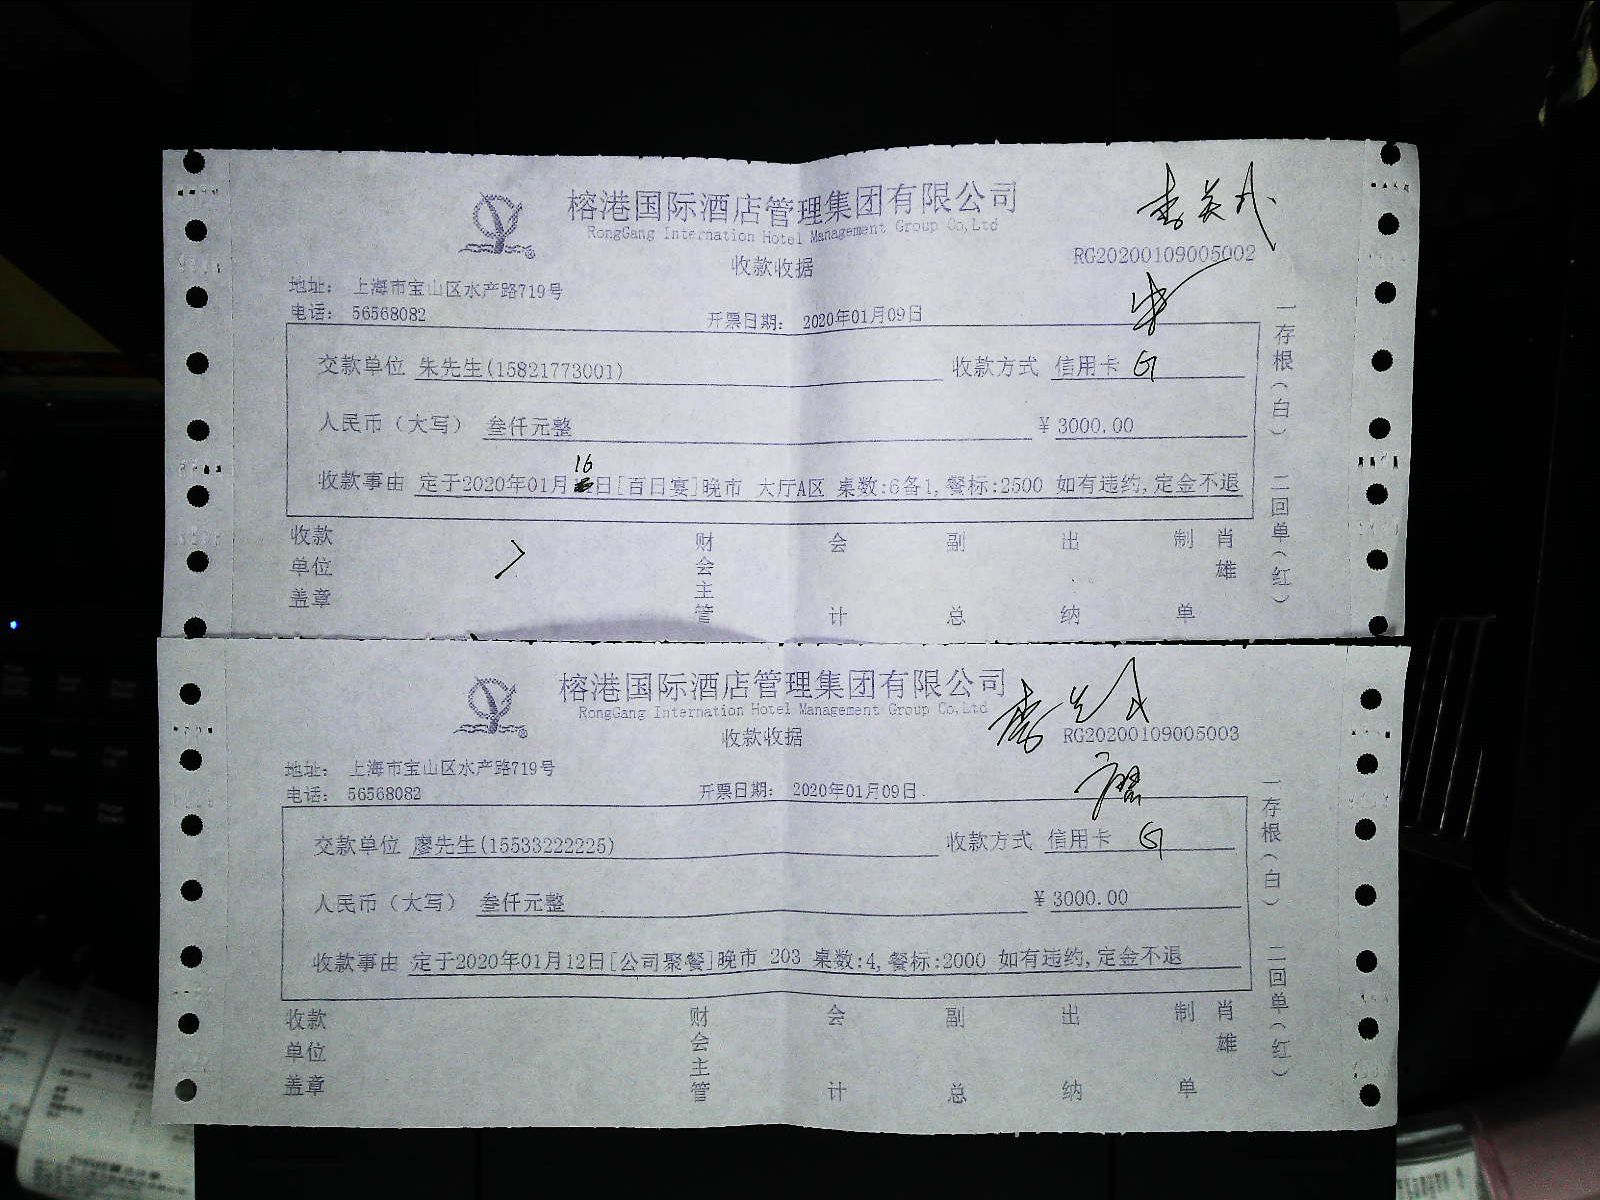 榕港国际酒店管理集团有限公司
RongGang Internation Hotel Management Group Co,Ltd
收款收据
RG20200109005002
地址: 上海市宝山区水产路719号
电话: 56568082
开票日期: 2020年01月09日
交款单位 朱先生(15821773001) 收款方式 信用卡
人民币（大写） 叁仟元整 ¥ 3000.00
16
收款事由 定于2020年01月日[百日宴]晚市 大厅A区 桌数:6备1,餐标:2500 如有违约,定金不退
收款单位盖章 财会主管 会计 副总 出纳 制单 肖雄
一存根（白） 二回单（红）
榕港国际酒店管理集团有限公司
RongGang Internation Hotel Management Group Co,Ltd
收款收据
RG20200109005003
地址: 上海市宝山区水产路719号
电话: 56568082
开票日期: 2020年01月09日
交款单位 廖先生(15533222225) 收款方式 信用卡
人民币（大写） 叁仟元整 ¥ 3000.00
收款事由 定于2020年01月12日[公司聚餐]晚市 203 桌数:4,餐标:2000 如有违约,定金不退
收款单位盖章 财会主管 会计 副总 出纳 制单 肖雄
一存根（白） 二回单（红）